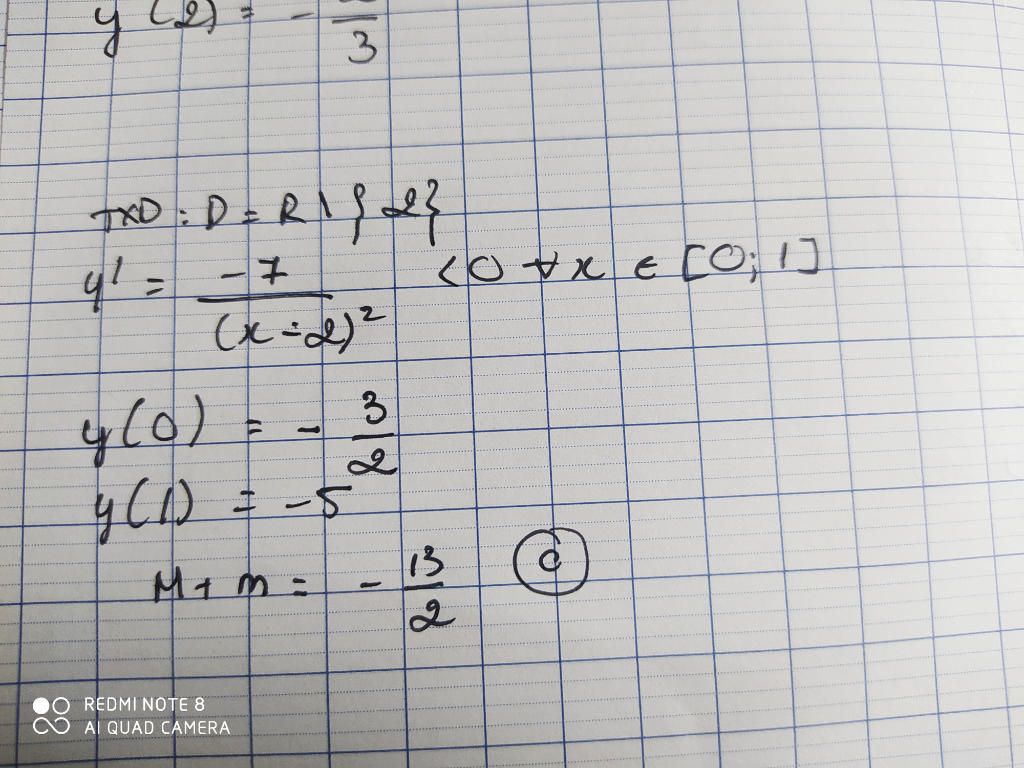 y(2) = - 3
TXD : D = R \ { 2 }
y' = -7 / (x - 2)² < 0 ∀x ∈ [0; 1]
y(0) = - 3/2
y(1) = -5
M + m = - 13/2 C
REDMI NOTE 8
AI QUAD CAMERA